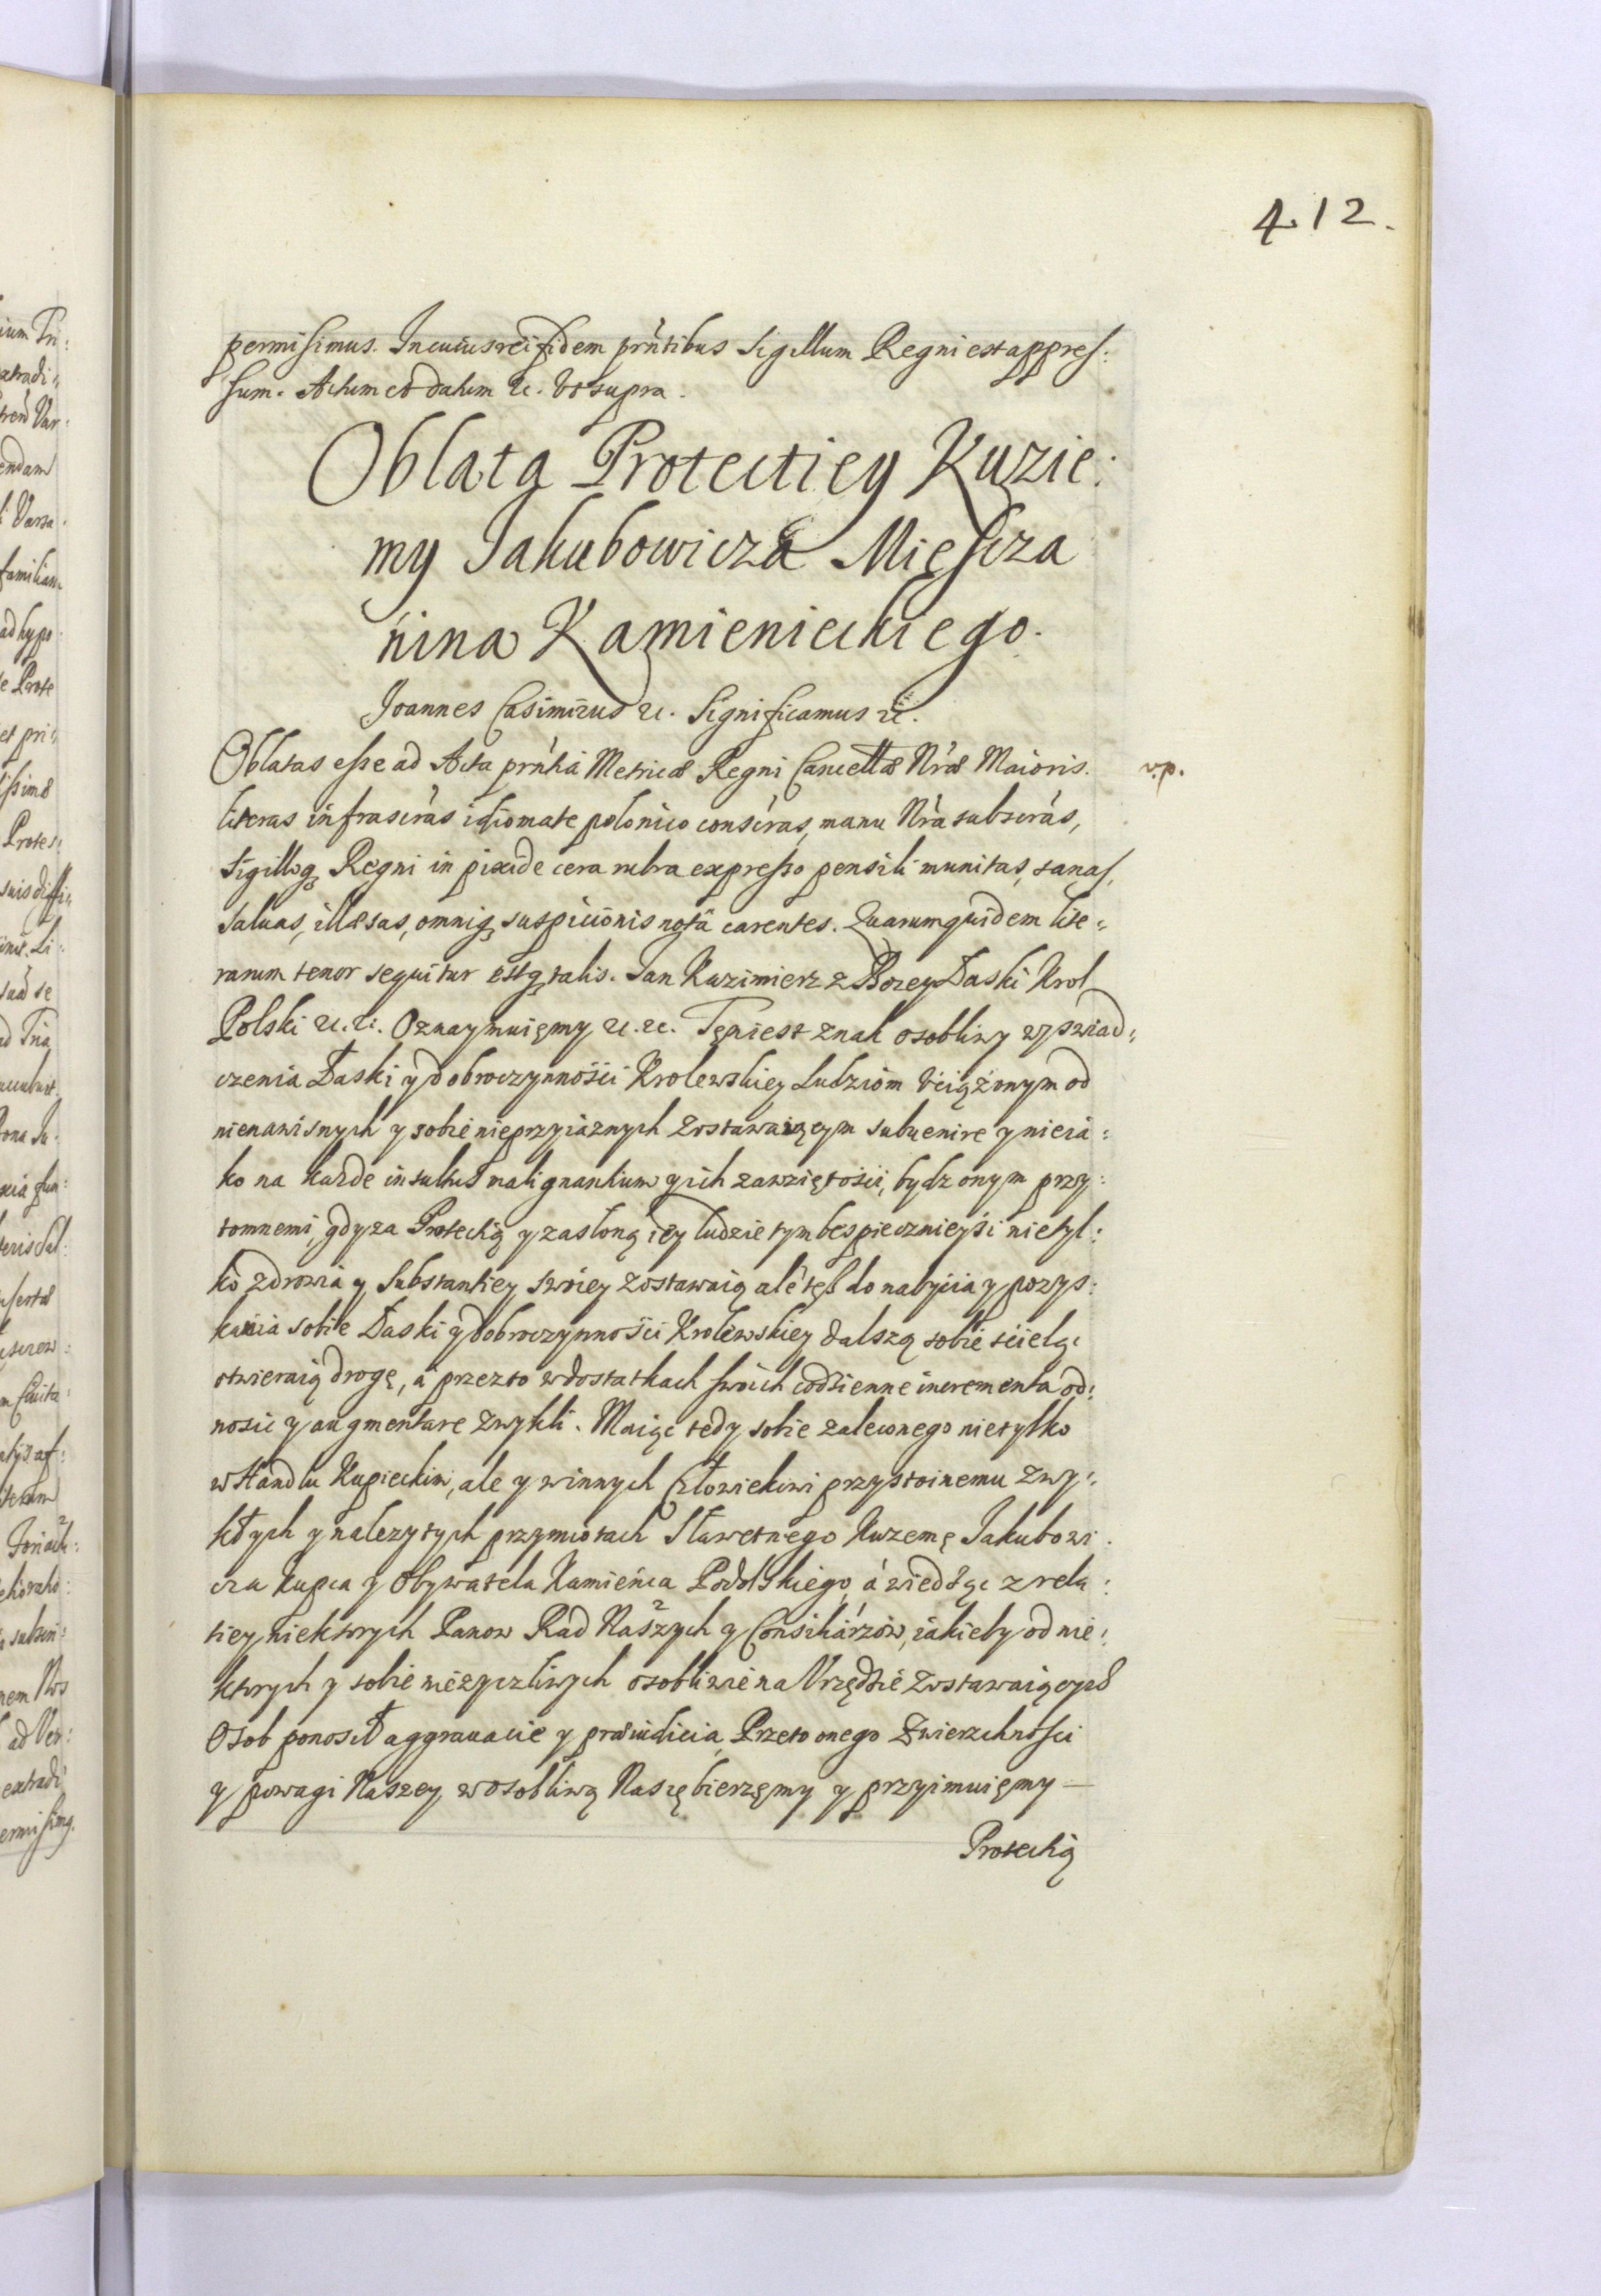 412.
permisimus. In cuius rei fidem prńtibus Sigillum Regni est appres:
sum. Actum et datum &c. Vt supra.
Oblata Protectiey Kuzie:
my Jakubowicza Mięscza
nina Kamienieckiego.
Joannes Casimirus &c. Significamus &c.
Oblatas esse ad Acta prńtia Metricæ Regni Cancellæ Nræ Maioris. v.p.
literas infrascrás idiomate polonico conscrás, manu Nrá subscrás,
Sigilloq; Regni in pixide cera rubra expresso pensili munitas, sanas,
Saluas, illæsas, omniq; suspicionis notâ carentes. Quarumquidem lite:
rarum tenor sequitur estq; talis. Jan Kazimierz z Bozey Łaski Krol
Polski &c. &c. Oznaymuięmy &c. &c. Tęn iest znak osobliwy wyswiad:
czenia Łaski y dobroczynności Krolewskiey Ludziom Vciążonym od
nienawisnych y sobie nieprzyiaznych zostawaiącym subuenire y nieia:
ko na każde insultus malignantium y ich zawziętości, bydz onym przy:
tomnemi, gdy za Protectią y zasloną iey ludzie tym bespiecznieyśi nietyl:
ko zdrowia y Substantiey swoiey zostawaią ale też do nabyćia y pozys:
kania sobie Łaski y dobroczynności Krolewskiey dalszą sobie ścielą
otwieraią drogę, á przezto w dostatkach swoich codzienne incrementa od:
nosic y augmentare zwykli. Maiąc tedy sobie zaleconego nietylko
w Handlu Kupieckim, ale y w innych Człowiekowi przystoinemu zwy:
kłych y nalezytych przymiotach Sławetnego Kuzemę Jakubowi:
cza Kupca y Obywatela Kamieńca Podolskiego, á wiedząc z rela:
tiey niektorych Panow Rad Naszych y Consiliárzów, iakieby od nie:
ktorych y sobie nieżyczliwych osobliwie na Vrzędzie zostawaiących
Osob ponosił aggrauacie y præiudicia, Przeto onego Zwierzchności
y powagi Naszey w osobliwą Nasię bierzęmy y przyimuięmy
Protectią